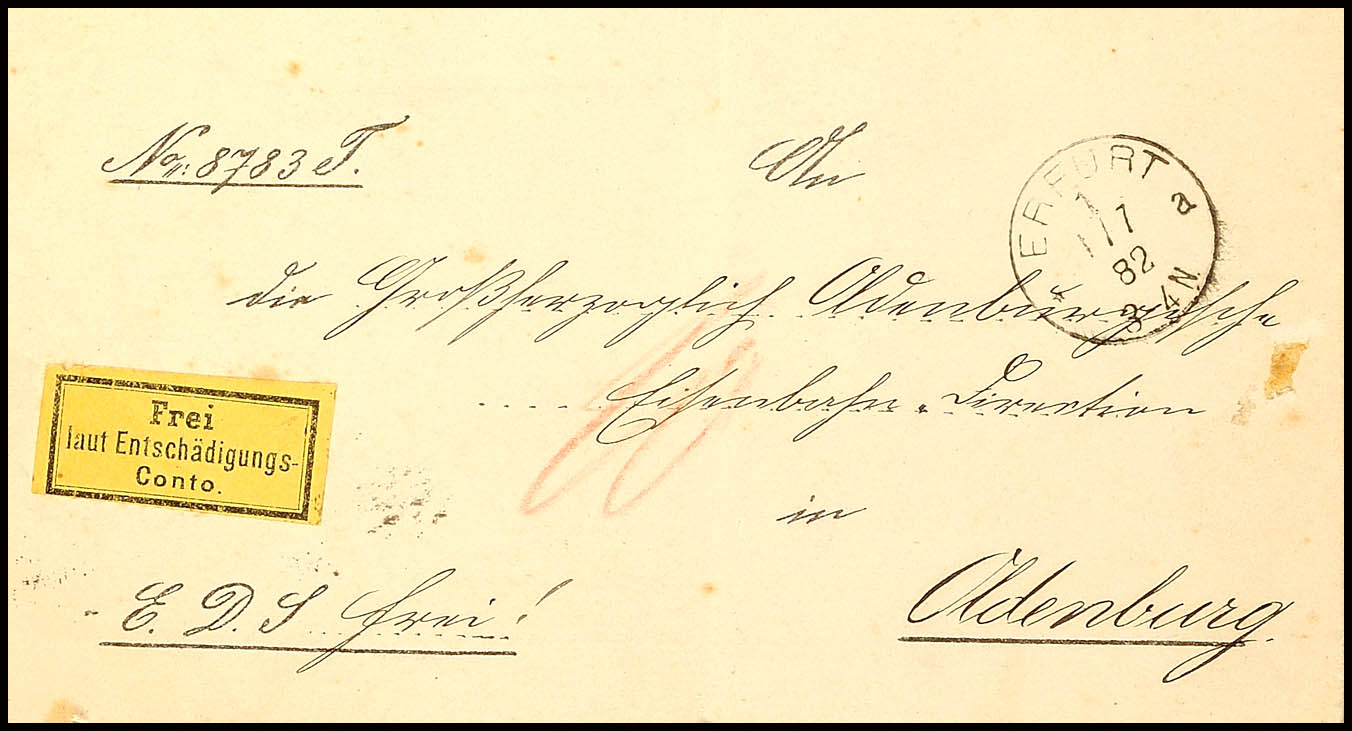 No: 8783 T.
An
ERFURT a
82
3-4N
die Großherzoglich Oldenburgische
Eisenbahn-Direction
Frei
laut Entschädigungs-
Conto.
in
Oldenburg.
E. D. S frei!